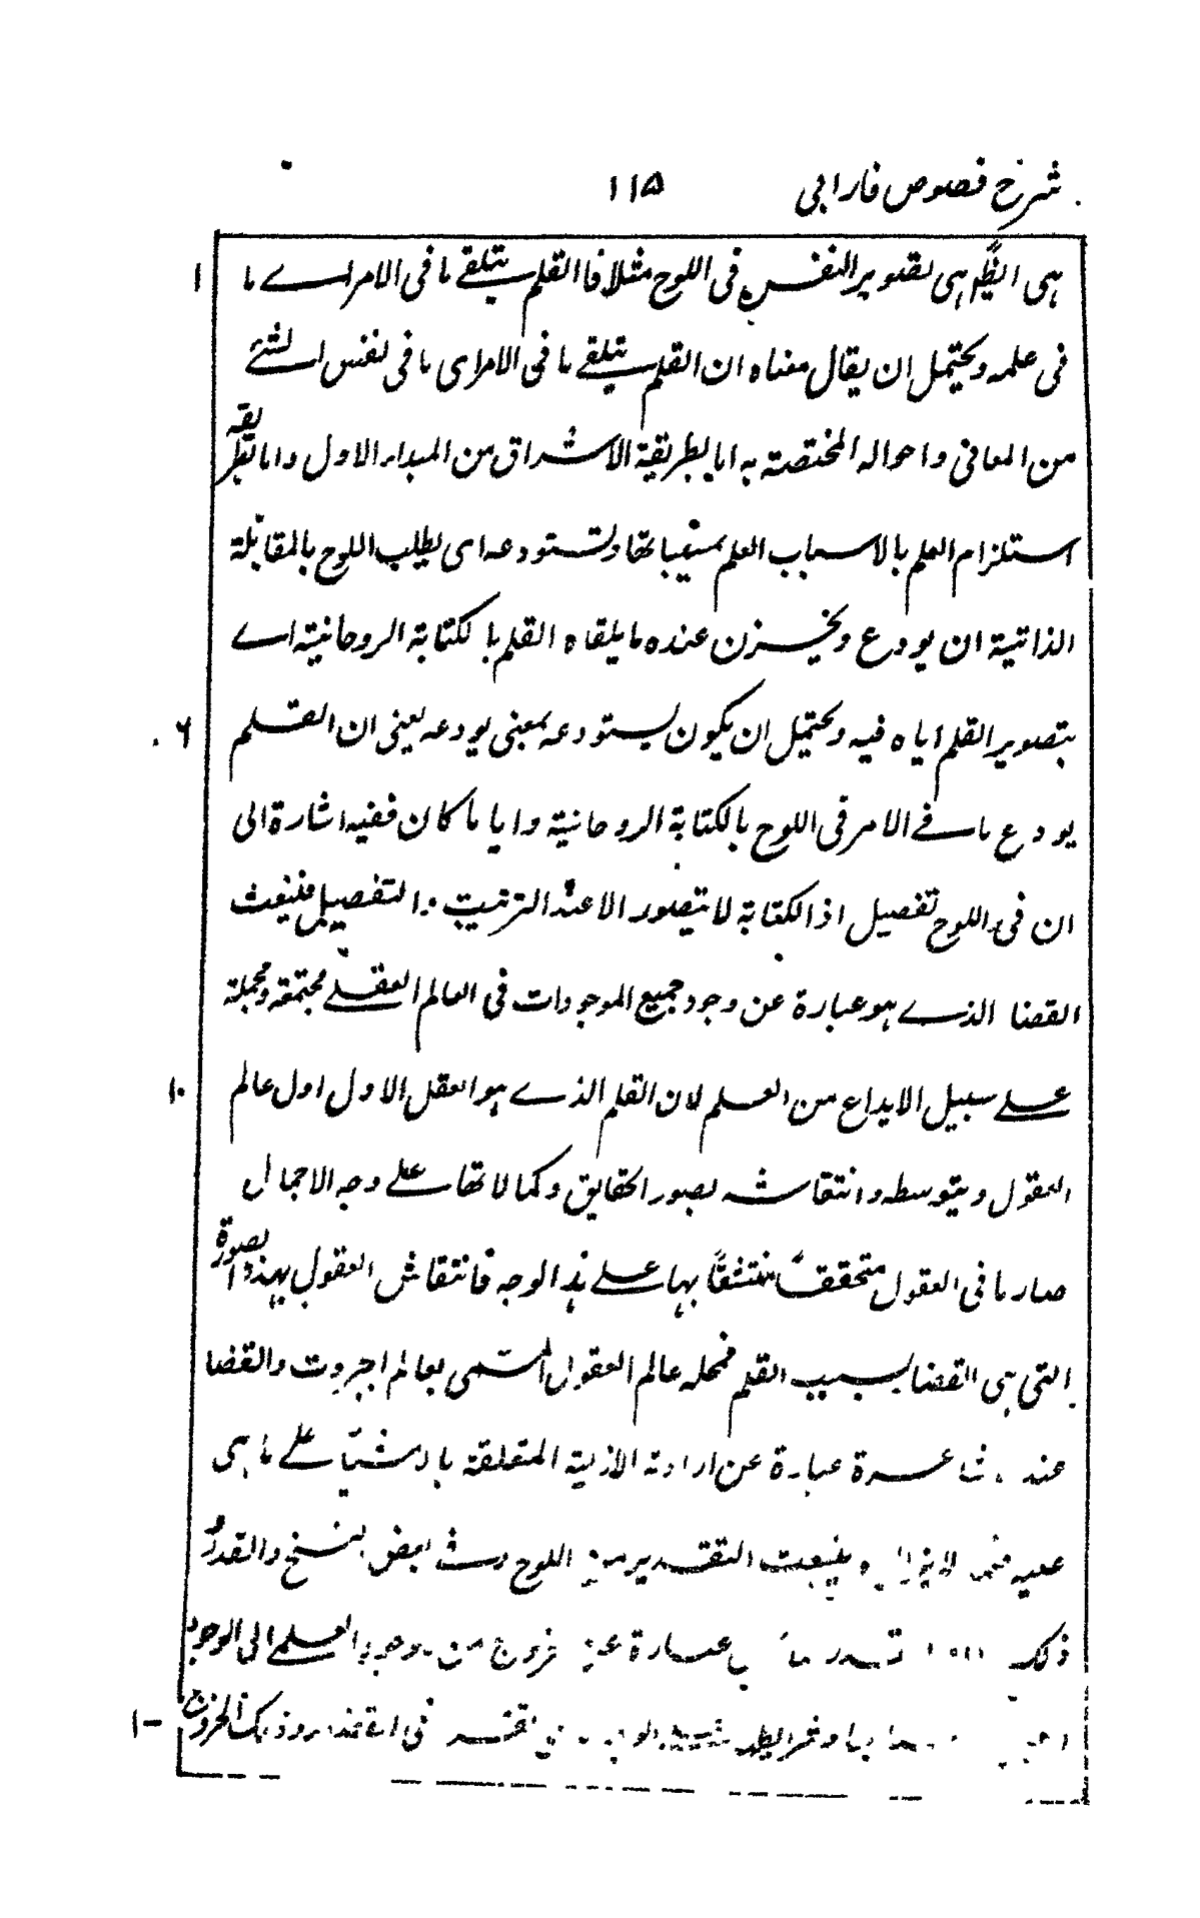 شرح فصوص فارابی ١١٥
هی ایضًا هی تصویر النفس فی اللوح مثلا فالقلم یتلقے ما فی الامر اے ما ١
فی علمه ویحتمل ان یقال معناه ان القلم یتلقے ما فی الامر ای ما فی نفس الشئے
من المعانی واحواله المختصة به اما بطریقة الاشراق من المبداء الاول واما بطریقه
استلزام العلم بالاسباب العلم بمسبباتها ویستودعه ای یطلب اللوح بالمقابلة
الذاتیة ان یودع ویخزن عنده ما یلقاه القلم بالکتابة الروحانیة اے
بتصویر القلم ایاه فیه ویحتمل ان یکون یستودعه بمعنی یودعه یعنی ان القلم ٦
یودع ما فے الامر فی اللوح بالکتابة الروحانیة وایا ما کان ففیه اشارة الی
ان فی اللوح تفصیل اذ الکتابة لا یتصور الا عند الترتیب والتفصیل فینبعث
القضا الذے هو عبارة عن وجود جمیع الموجودات فی العالم العقلے مجتمعة ومجملة
علے سبیل الابداع من القلم لان القلم الذے هو العقل الاول اول عالم ١٠
العقول وبتوسطه وانتقاشه بصور الحقایق وکمالاتها علے وجه الاجمال
صار ما فی العقول متحققًا منتقشًا بها علے هذا الوجه فانتقاش العقول بهذه الصورة
التی هی القضا بسبب القلم فمحله عالم العقول المسمی بعالم الجبروت والقضا
عند الاشاعرة عبارة عن ارادته الازلیة المتعلقة بالاشیاء علے ما هی
علیه فیما لا یزال وینبعث التقدیر من اللوح وفی بعض النسخ والقدر
ذلک عبارة عن خروج من وجود العلمے الی الوجود
فی القضاء وذلک الخروج ١-